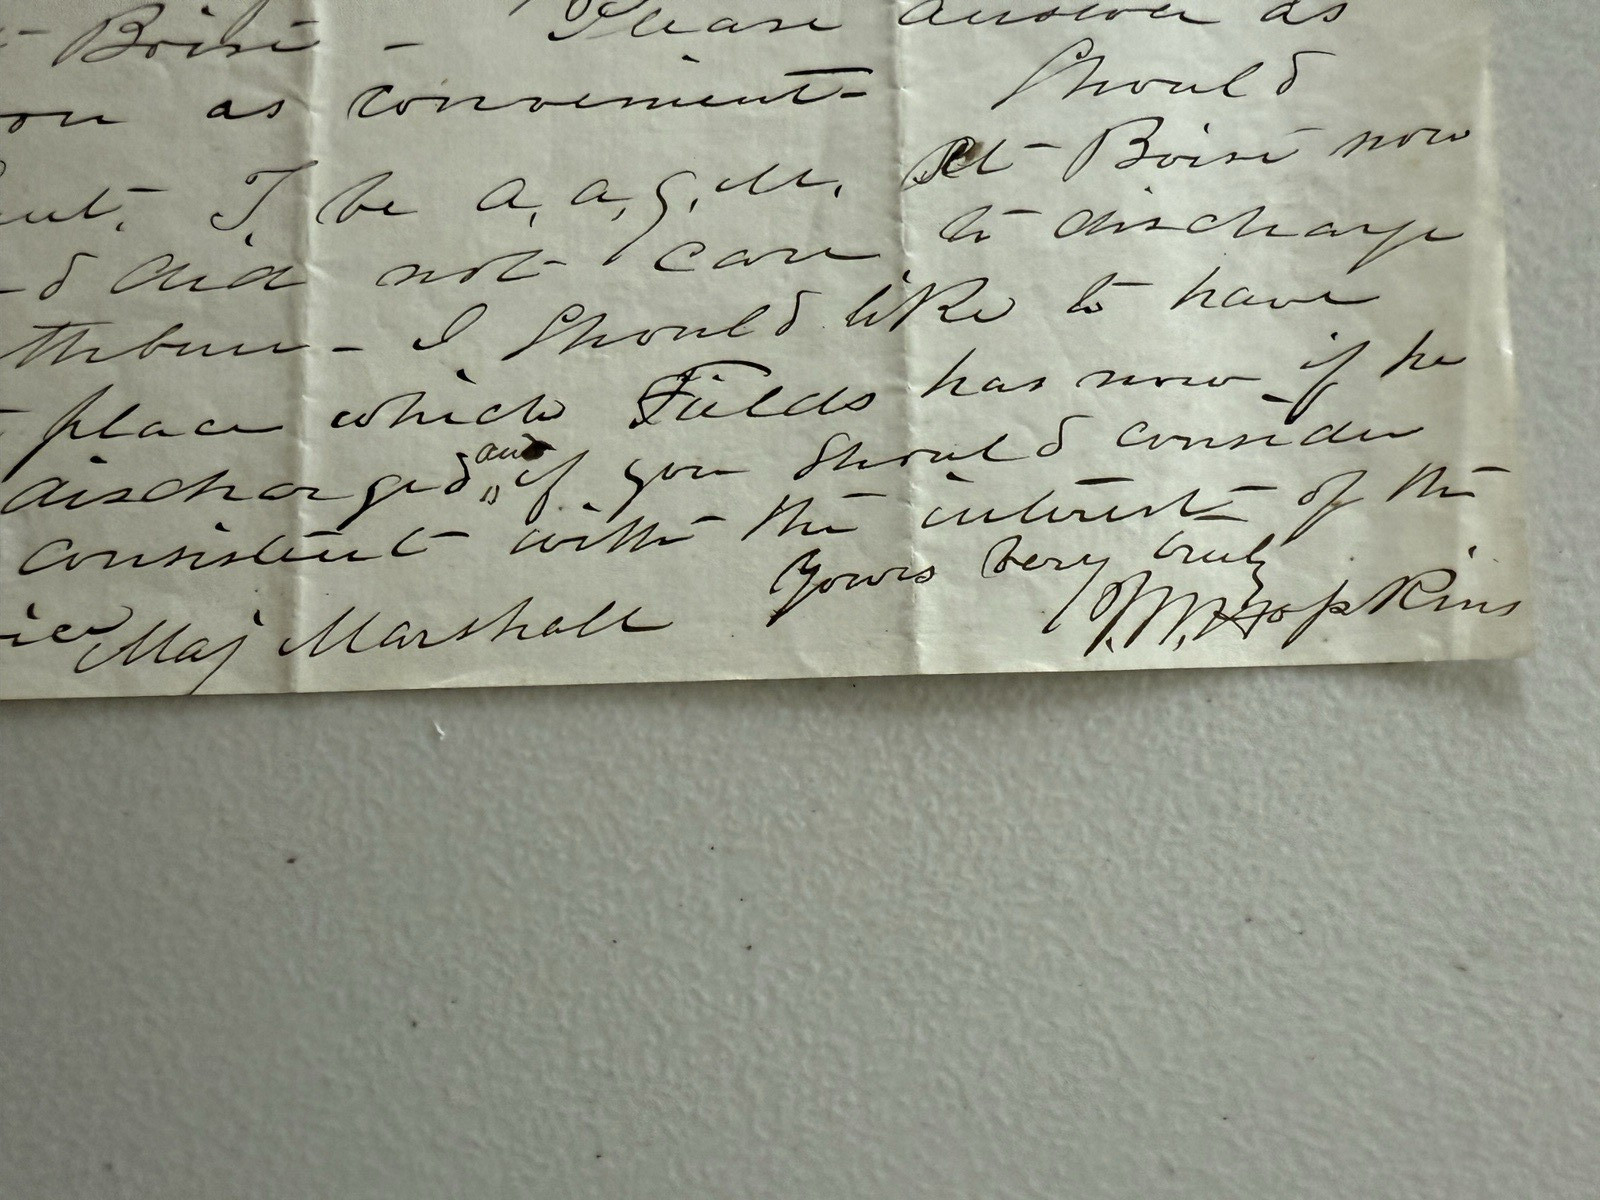 Boise - Please answer as
as convenient - Should
T. be A, A, Q, M. At Boise now
did not care to discharge
- I Should like to have
place which Fields has now if he
discharged and if you Should consider
consistent with the interest of the
Yours very truly
Maj Marshall Hopkins